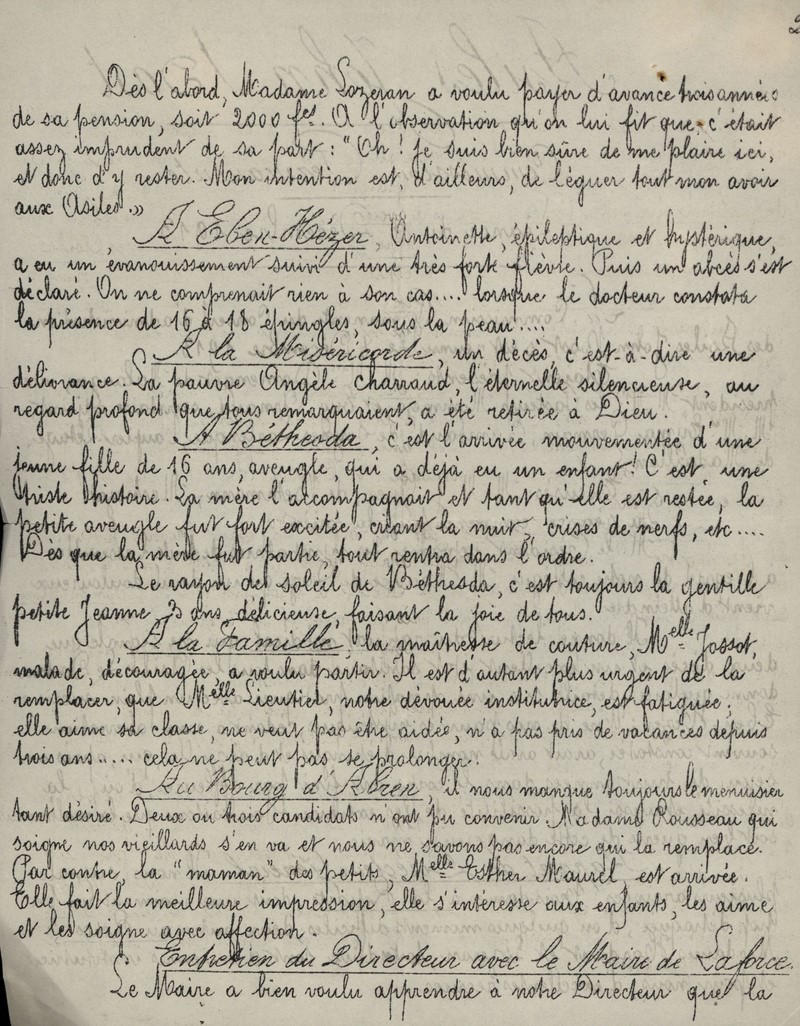 Dès l'abord, Madame Lozeran a voulu payer d'avance trois années
de sa pension, soit 2000 fcs. A l'observation qu'on lui fit que c'était
assez imprudent de sa part : "Oh ! Je suis bien sûre de me plaire ici,
et donc d'y rester. Mon intention est, d'ailleurs, de léguer tout mon avoir
aux Asiles.»
A Eben-Hézer, Antoinette, épileptique et hystérique,
a eu un évanouissement suivi d'une très forte fièvre. Puis un abcès s'est
déclaré. On ne comprenait rien à son cas.... lorsque le docteur constata
la présence de 16 à 18 épingles, sous la peau....
A la Miséricorde, un décès, c'est-à-dire une
délivrance. La pauvre Angèle Charraud, l'éternelle silencieuse, au
regard profond que tous remarquaient, a été retirée à Dieu.
A Béthesda, c'est l'arrivée mouvementée d'une
jeune fille de 16 ans, aveugle, qui a déjà eu un enfant ! C'est une
triste histoire. La mère l'accompagnait et tant qu'elle est restée, la
petite aveugle fut fort excitée, criant la nuit, crises de nerfs, etc....
Dès que la mère fut partie, tout rentra dans l'ordre.
Le rayon de soleil de Béthesda, c'est toujours la gentille
petite Jeanne, 3 ans, délicieuse, faisant la joie de tous.
A la Famille, la maîtresse de couture, Melle Jossot,
malade, découragée, a voulu partir. Il est d'autant plus urgent de la
remplacer, que Melle Lieutier, notre dévouée institutrice, est fatiguée ;
elle aime sa classe, ne veut pas être aidée, n'a pas pris de vacances depuis
trois ans..... cela ne peut pas se prolonger.
Au Bourg d'Abren, il nous manque toujours le menuisier
tant désiré. Deux ou trois candidats n'ont pu convenir. Madame Rousseau qui
soigne nos vieillards s'en va et nous ne savons pas encore qui la remplace.
Par contre, la "maman" des petits, Melle Esther Maurel, est arrivée.
Elle fait la meilleure impression, elle s'intéresse aux enfants, les aime
et les soigne avec affection.
Entretien du Directeur avec le Maire de Laforce.
Le Maire a bien voulu apprendre à notre Directeur que la